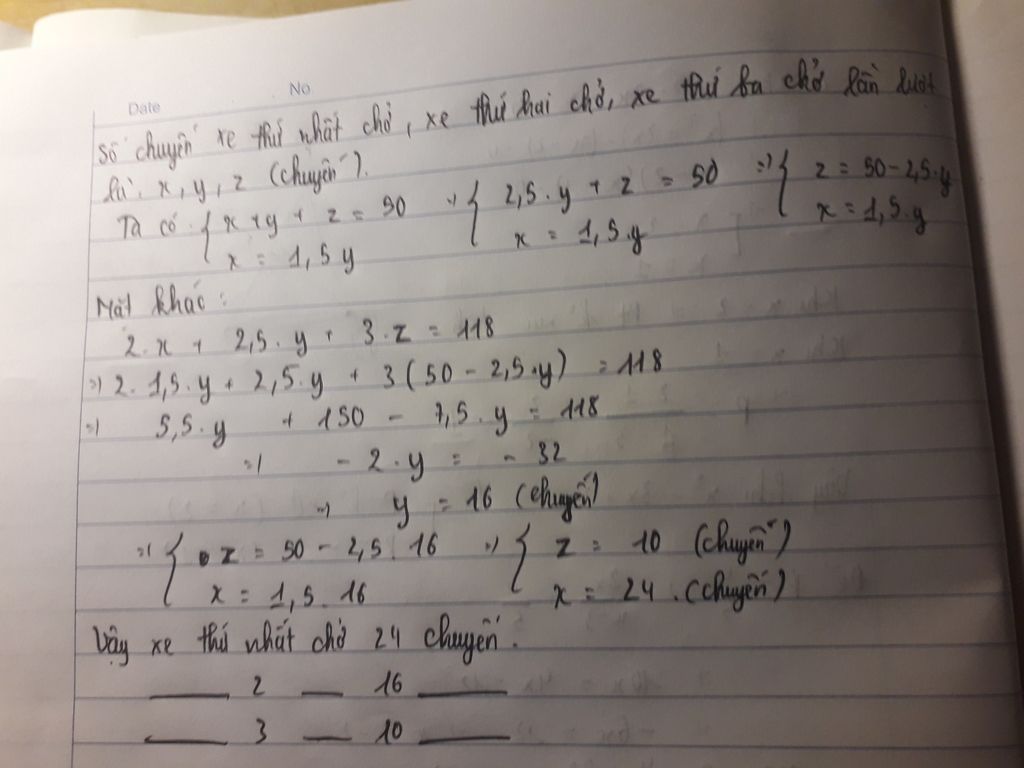 Date No
Số chuyến xe thứ nhất chở, xe thứ hai chở, xe thứ ba chở lần lượt
là: x, y, z (chuyến).
Ta có { x + y + z = 50 => { 2,5.y + z = 50 => { z = 50 - 2,5.y
x = 1,5y x = 1,5.y x = 1,5.y
Mặt khác:
2.x + 2,5.y + 3.z = 118
=> 2.1,5.y + 2,5.y + 3(50 - 2,5.y) = 118
=> 5,5.y + 150 - 7,5.y = 118
=> - 2.y = - 32
=> y = 16 (chuyến)
=> { z = 50 - 2,5.16 => { z = 10 (chuyến)
x = 1,5.16 x = 24.(chuyến)
Vậy xe thứ nhất chở 24 chuyến.
—— 2 — 16 ——
—— 3 — 10 ——